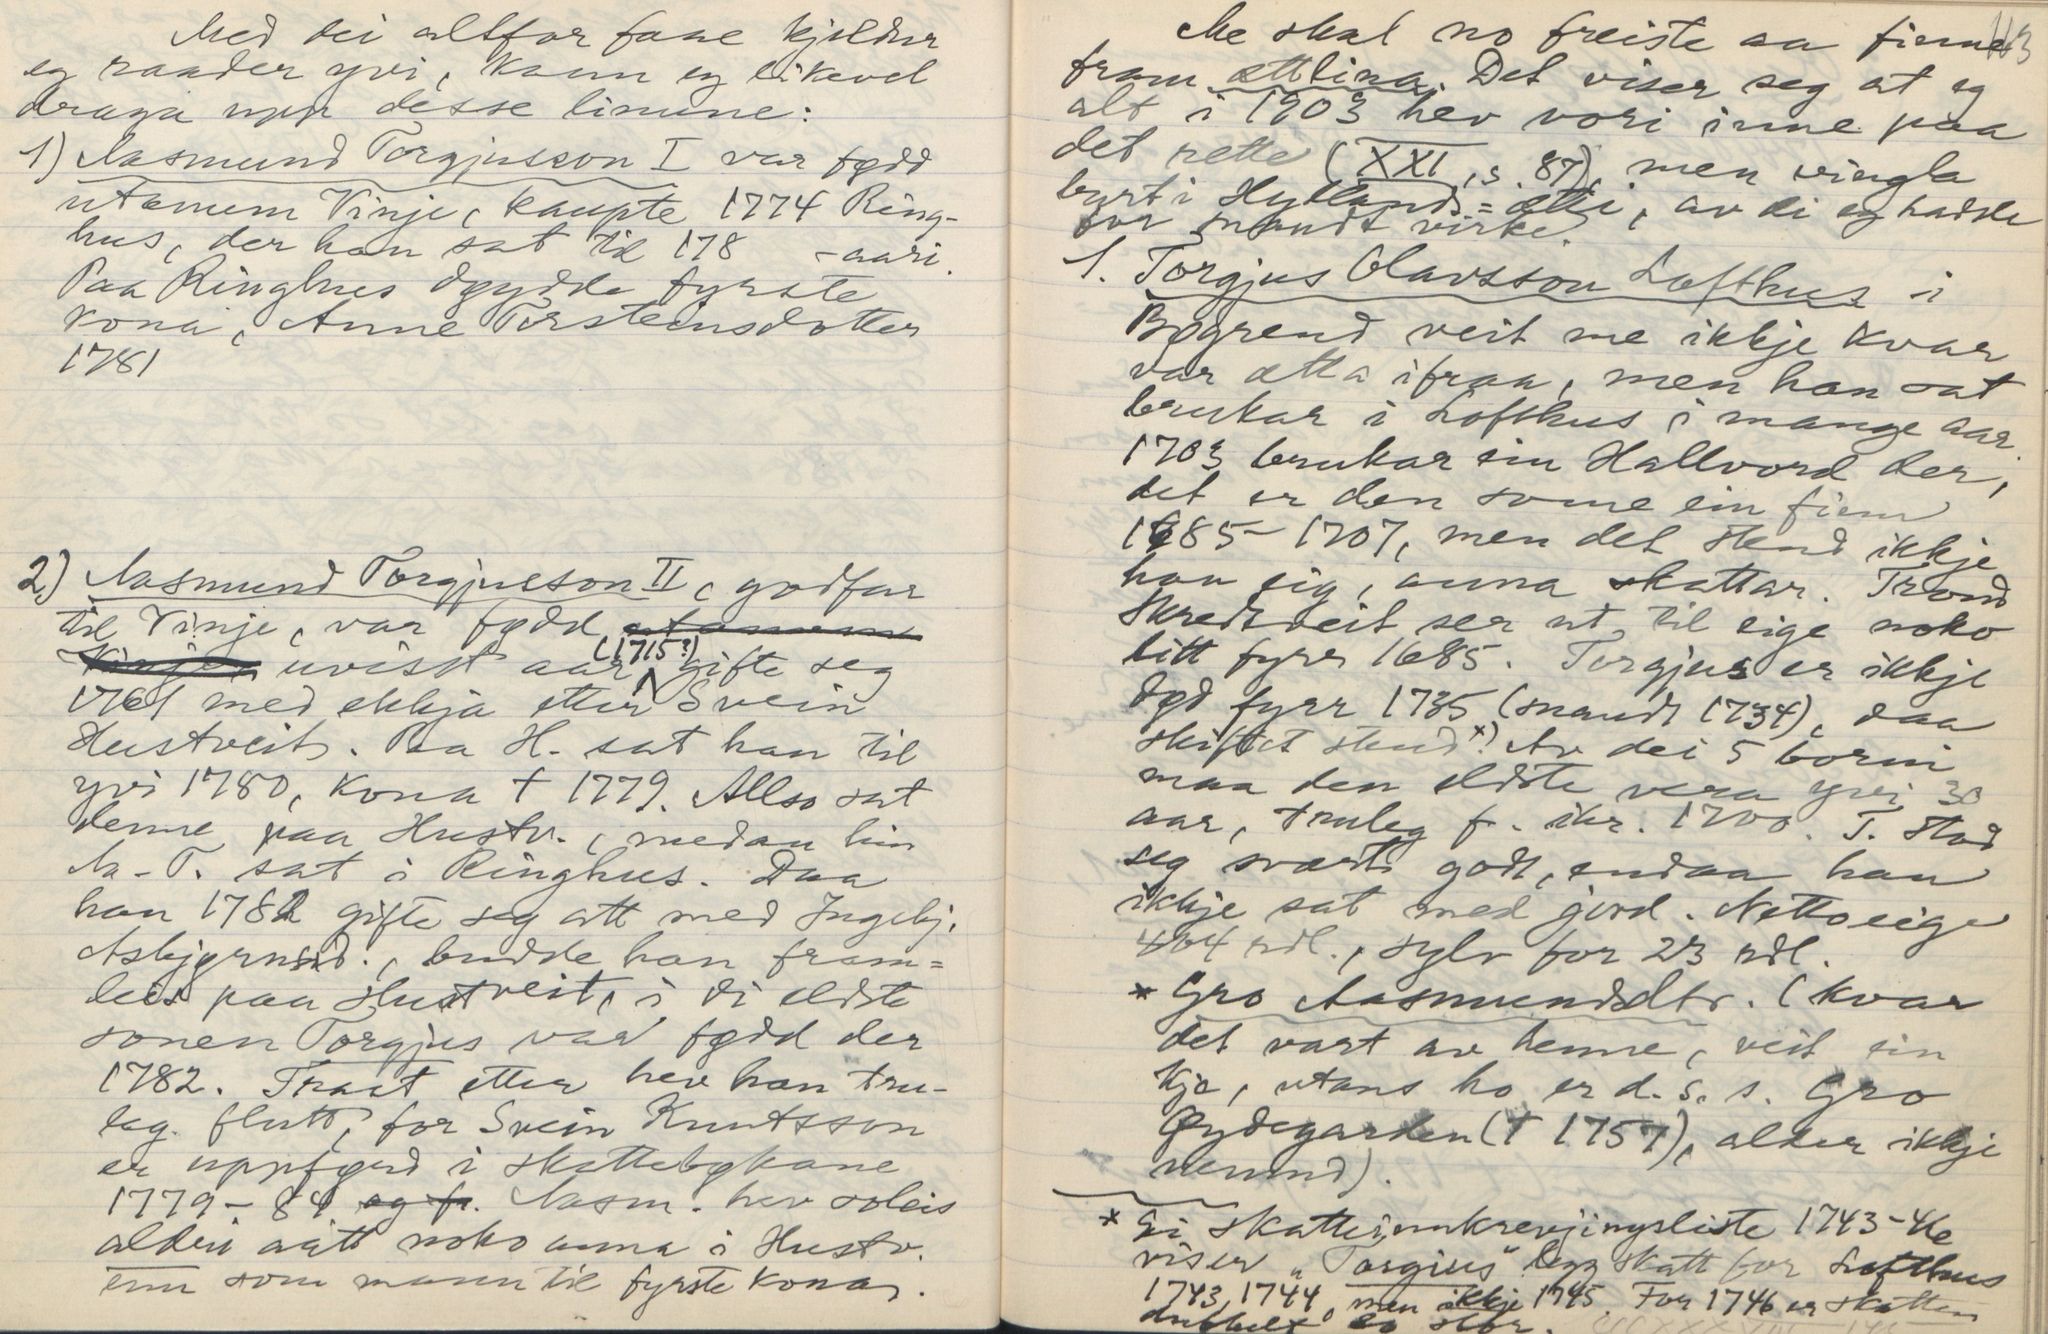 Med dei altfor faae kjeldur
eg raader yvi, kann eg likevel
draga upp desse linune:
1) Aasmund Torgjusson I var fødd
utanum Vinje, kaupte 1774 Ring-
hus, der han sat til 178 -aari.
Paa Ringhus døydde fyrste
kona, Anne Torsteinsdotter
1781
2) Aasmund Torgjusson II, godfar
til Vinje, var fødd utanum
Vinje, uvisst aar (1715?) gifte seg
1761 med ekkja etter Svein
Hustveit. Paa H. sat han til
yvi 1780, kona † 1779. Allso sat
denne paa Hustv., medan hin
Aa. T. sat i Ringhus. Daa
han 1782 gifte seg att med Ingebj.
Asbjørnsd., budde han fram=
leis paa Hustveit, i di eldste
sonen Torgjus var fødd der
1782. Trast etter hev han tru-
leg flutt, for Svein Knutsson
er uppførd i skattebøkane
1779-84 og fr. Aasm. hev soleis
aldri aatt noko anna i Hustv.
enn som mann til fyrste kona.
113
Me skal no freiste aa finne
fram ættlina. Det viser seg at eg
alt i 1903 hev vori inne paa
det rette (XXI, s. 87), men vingla
burt i Hyllands=ætti, av di eg hadde
for snaudt virke.
1. Torgjus Olavsson Lofthus i
Bøgrend veit me ikkje kvar
var ætta ifraa, men han sat
brukar i Lofthus i mange aar.
1703 brukar ein Hallvord der,
det er den same ein finn
1685-1707, men det stend ikkje
han eig, anna skattar. Trond
Skredtveit ser ut til eige noko
litt fyrr 1685. Torgjus er ikkje
død fyrr 1735 (snaudt 1734), daa
skiftet stend*) Av dei 5 borni
maa den eldste vera yvi 30
aar, truleg f. ikr. 1700. T. stod
seg svært godt, endaa han
ikkje sat med jord. Nettoeige
464 rdl., sylv for 23 rdl.
* Gro Aasmundsdtr. (kvar
det vart av henne, veit ein
kje, utans ho er d. s. s. Gro
Øydegarden († 1757), alder ikkje
nemnd).
* Ei skatteinnkrevjingsliste 1743-46
viser "Torgius" legg skatt for Lofthus
1743, 1744, men ikkje 1745. For 1746 er skatten
dubbelt so stor.